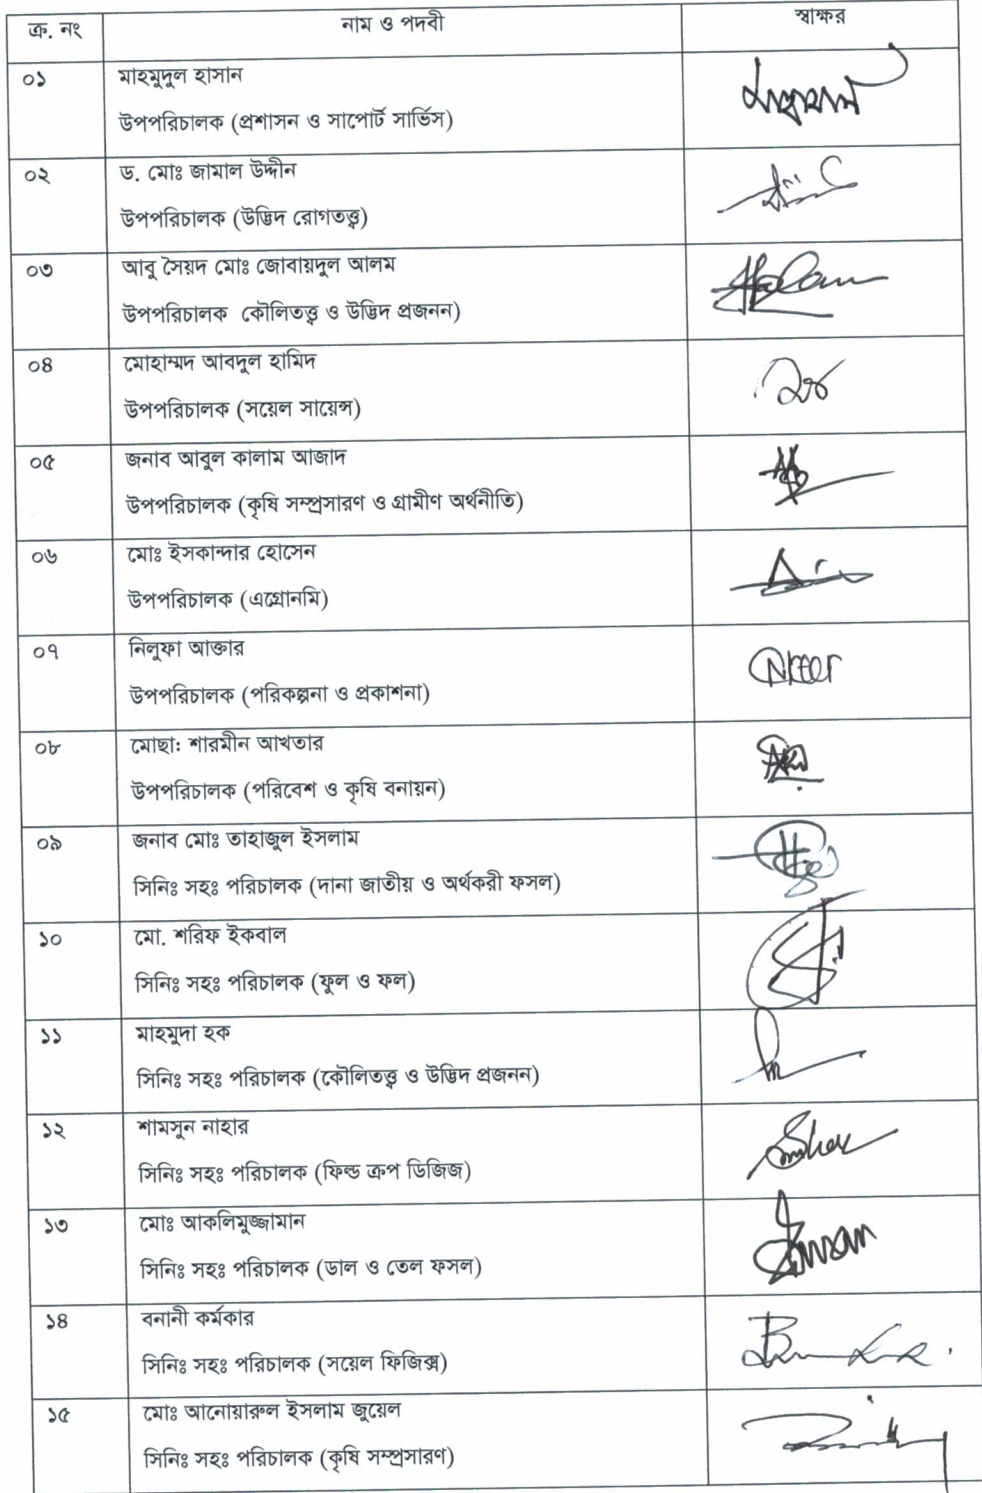 ক্র. নং নাম ও পদবী স্বাক্ষর
০১ মাহমুদুল হাসান
উপপরিচালক (প্রশাসন ও সাপোর্ট সার্ভিস)
০২ ড. মোঃ জামাল উদ্দীন
উপপরিচালক (উদ্ভিদ রোগতত্ত্ব)
০৩ আবু সৈয়দ মোঃ জোবায়দুল আলম
উপপরিচালক কৌলিতত্ত্ব ও উদ্ভিদ প্রজনন)
০৪ মোহাম্মদ আবদুল হামিদ
উপপরিচালক (সয়েল সায়েন্স)
০৫ জনাব আবুল কালাম আজাদ
উপপরিচালক (কৃষি সম্প্রসারণ ও গ্রামীণ অর্থনীতি)
০৬ মোঃ ইসকান্দার হোসেন
উপপরিচালক (এগ্রোনমি)
০৭ নিলুফা আক্তার
উপপরিচালক (পরিকল্পনা ও প্রকাশনা)
০৮ মোছা: শারমীন আখতার
উপপরিচালক (পরিবেশ ও কৃষি বনায়ন)
০৯ জনাব মোঃ তাহাজুল ইসলাম
সিনিঃ সহঃ পরিচালক (দানা জাতীয় ও অর্থকরী ফসল)
১০ মো. শরিফ ইকবাল
সিনিঃ সহঃ পরিচালক (ফুল ও ফল)
১১ মাহমুদা হক
সিনিঃ সহঃ পরিচালক (কৌলিতত্ত্ব ও উদ্ভিদ প্রজনন)
১২ শামসুন নাহার
সিনিঃ সহঃ পরিচালক (ফিল্ড ক্রপ ডিজিজ)
১৩ মোঃ আকলিমুজ্জামান
সিনিঃ সহঃ পরিচালক (ডাল ও তেল ফসল)
১৪ বনানী কর্মকার
সিনিঃ সহঃ পরিচালক (সয়েল ফিজিক্স)
১৫ মোঃ আনোয়ারুল ইসলাম জুয়েল
সিনিঃ সহঃ পরিচালক (কৃষি সম্প্রসারণ)